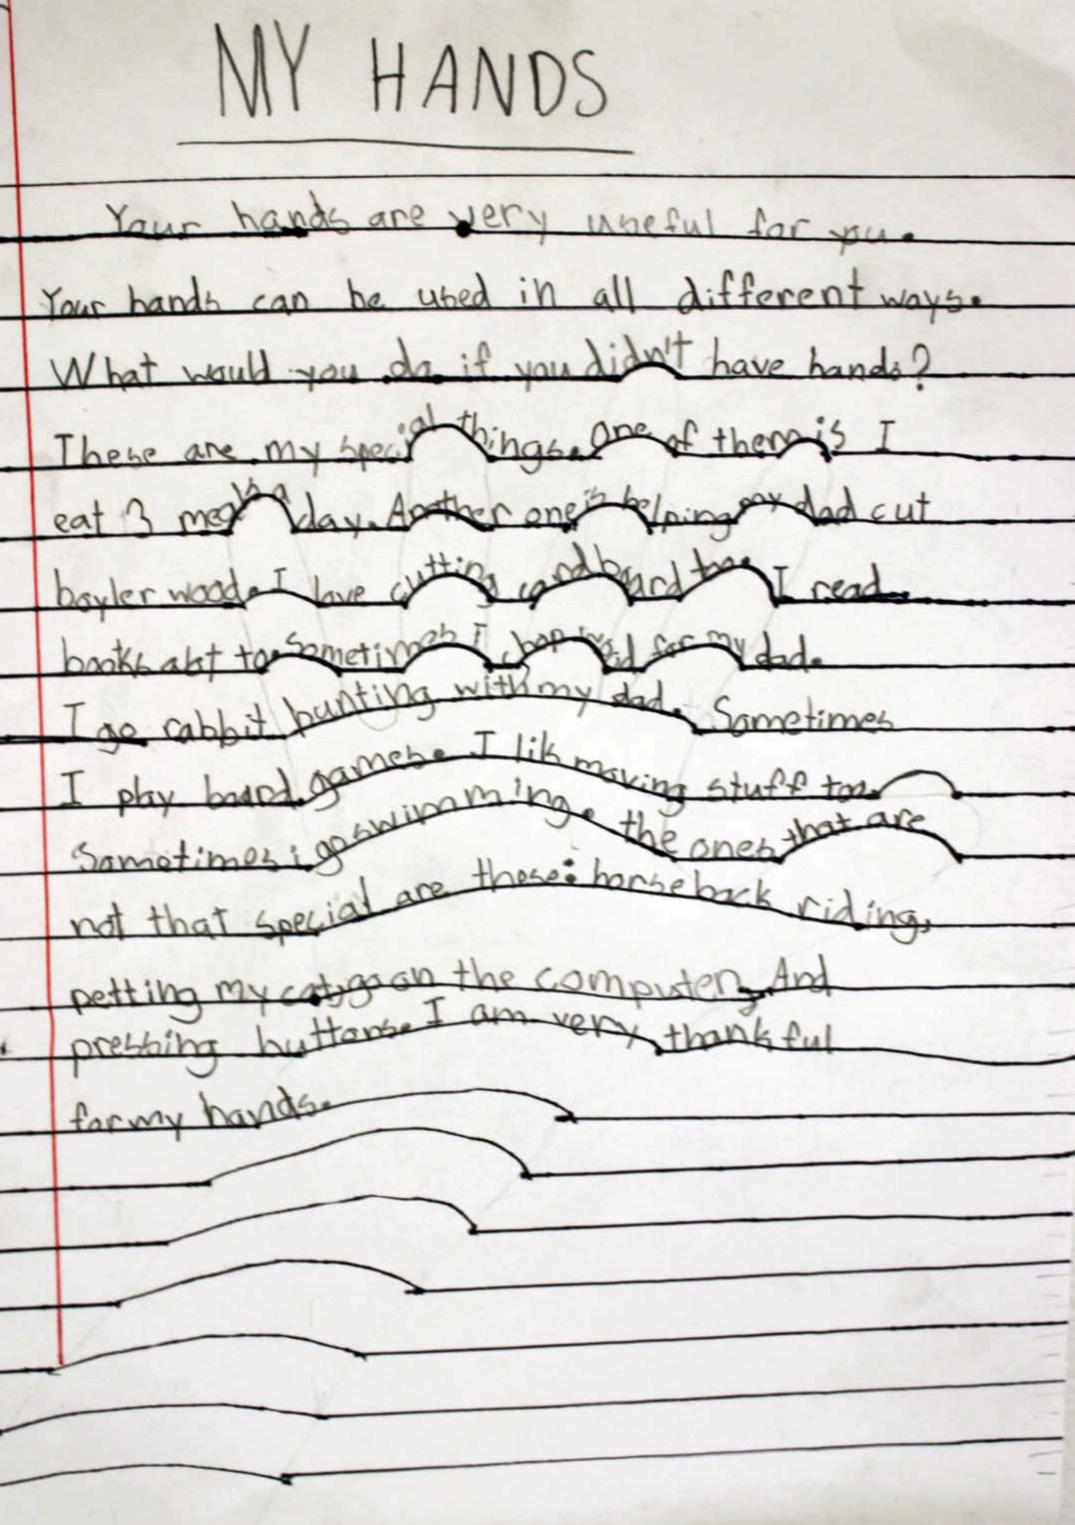 MY HANDS
Your hands are very useful for you.
Your hands can be used in all different ways.
What would you do if you didn't have hands?
These are my special things. One of them is I
eat 3 meals a day. Another one is helping my dad cut
boyler wood. I love cutting cardboard too. I read
books alot too. Sometimes I chop wood for my dad.
I go rabbit hunting with my dad. Sometimes
I play board games. I lik moving stuff too.
Sometimes i go swimming. the ones that are
not that special are these: horseback riding,
petting my cat, go on the computer, And
pressing buttons. I am very thankful
for my hands.